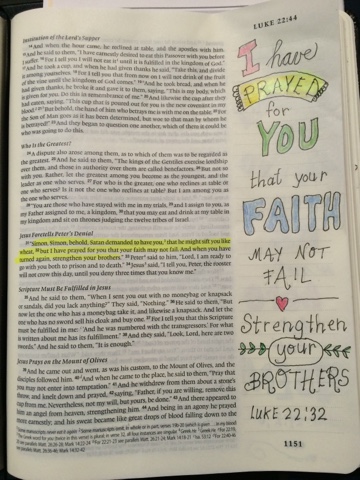 LUKE 22:44
Institution of the Lord's Supper
14 And when the hour came, he reclined at table, and the apostles with him.
15 And he said to them, "I have earnestly desired to eat this Passover with you before
I suffer. 16 For I tell you I will not eat it until it is fulfilled in the kingdom of God."
17 And he took a cup, and when he had given thanks he said, "Take this, and divide
it among yourselves. 18 For I tell you that from now on I will not drink of the fruit
of the vine until the kingdom of God comes." 19 And he took bread, and when he
had given thanks, he broke it and gave it to them, saying, "This is my body, which
is given for you. Do this in remembrance of me." 20 And likewise the cup after they
had eaten, saying, "This cup that is poured out for you is the new covenant in my
blood. 21 But behold, the hand of him who betrays me is with me on the table. 22 For
the Son of Man goes as it has been determined, but woe to that man by whom he
is betrayed!" 23 And they began to question one another, which of them it could be
who was going to do this.
Who Is the Greatest?
24 A dispute also arose among them, as to which of them was to be regarded as
the greatest. 25 And he said to them, "The kings of the Gentiles exercise lordship
over them, and those in authority over them are called benefactors. 26 But not so
with you. Rather, let the greatest among you become as the youngest, and the
leader as one who serves. 27 For who is the greater, one who reclines at table or
one who serves? Is it not the one who reclines at table? But I am among you as
the one who serves.
28 "You are those who have stayed with me in my trials, 29 and I assign to you, as
my Father assigned to me, a kingdom, 30 that you may eat and drink at my table in
my kingdom and sit on thrones judging the twelve tribes of Israel.
Jesus Foretells Peter's Denial
31 "Simon, Simon, behold, Satan demanded to have you, that he might sift you like
wheat, 32 but I have prayed for you that your faith may not fail. And when you have
turned again, strengthen your brothers." 33 Peter said to him, "Lord, I am ready to
go with you both to prison and to death." 34 Jesus said, "I tell you, Peter, the rooster
will not crow this day, until you deny three times that you know me."
Scripture Must Be Fulfilled in Jesus
35 And he said to them, "When I sent you out with no moneybag or knapsack
or sandals, did you lack anything?" They said, "Nothing." 36 He said to them, "But
now let the one who has a moneybag take it, and likewise a knapsack. And let the
one who has no sword sell his cloak and buy one. 37 For I tell you that this Scripture
must be fulfilled in me: 'And he was numbered with the transgressors.' For what
is written about me has its fulfillment." 38 And they said, "Look, Lord, here are two
swords." And he said to them, "It is enough."
Jesus Prays on the Mount of Olives
39 And he came out and went, as was his custom, to the Mount of Olives, and the
disciples followed him. 40 And when he came to the place, he said to them, "Pray that
you may not enter into temptation." 41 And he withdrew from them about a stone's
throw, and knelt down and prayed, 42 saying, "Father, if you are willing, remove this
cup from me. Nevertheless, not my will, but yours, be done." 43 And there appeared
to him an angel from heaven, strengthening him. 44 And being in agony he prayed
more earnestly; and his sweat became like great drops of blood falling down to the
1151
I have
PRAYED
for
YOU
that your
FAITH
MAY NOT
FAIL
Strengthen
your
BROTHERS
LUKE 22:32